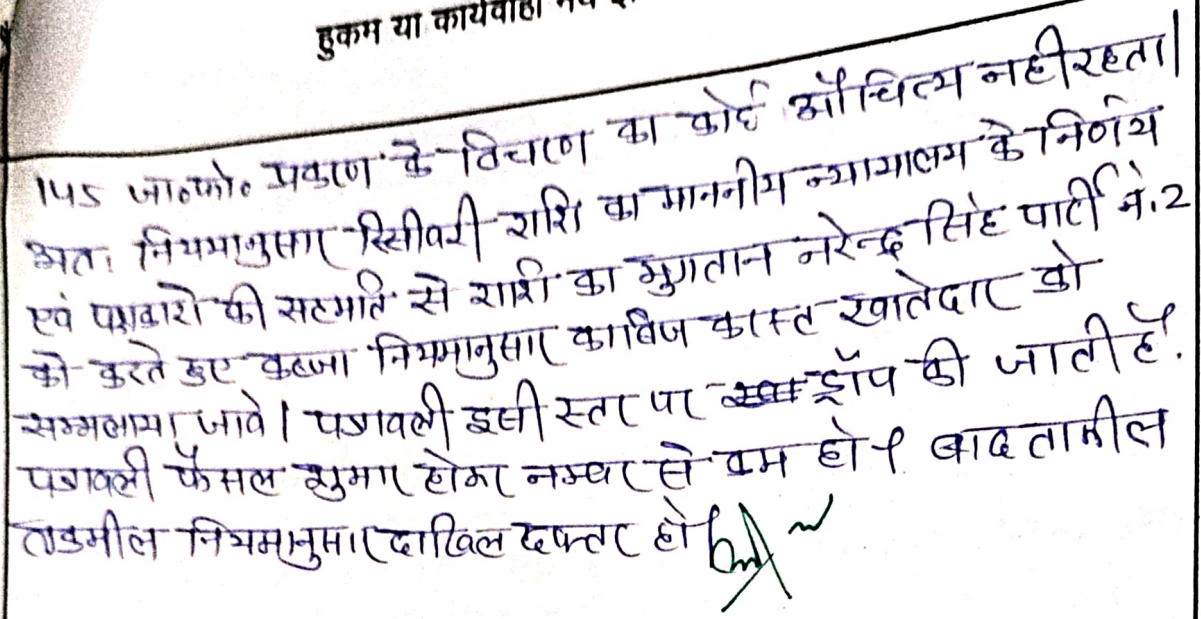 हुकम या कार्यवाही
145 जा०फो० प्रकरण के विचारण का कोई औचित्य नही रहता।
अतः नियमानुसार रिसीवरी राशि का माननीय न्यायालय के निर्णय
एवं पक्षकारो की सहमति से राशी का भुगतान नरेन्द्र सिंह पार्टी नं. 2
को करते हुए कब्जा नियमानुसार काबिज कास्त खातेदार को
सम्भलाया जावे। पत्रावली इसी स्तर पर ड्रॉप की जाती है.
पत्रावली फैसल शुमार होकर नम्बर से कम हो। बाद तामील
तकमील नियमानुसार दाखिल दफ्तर हो।